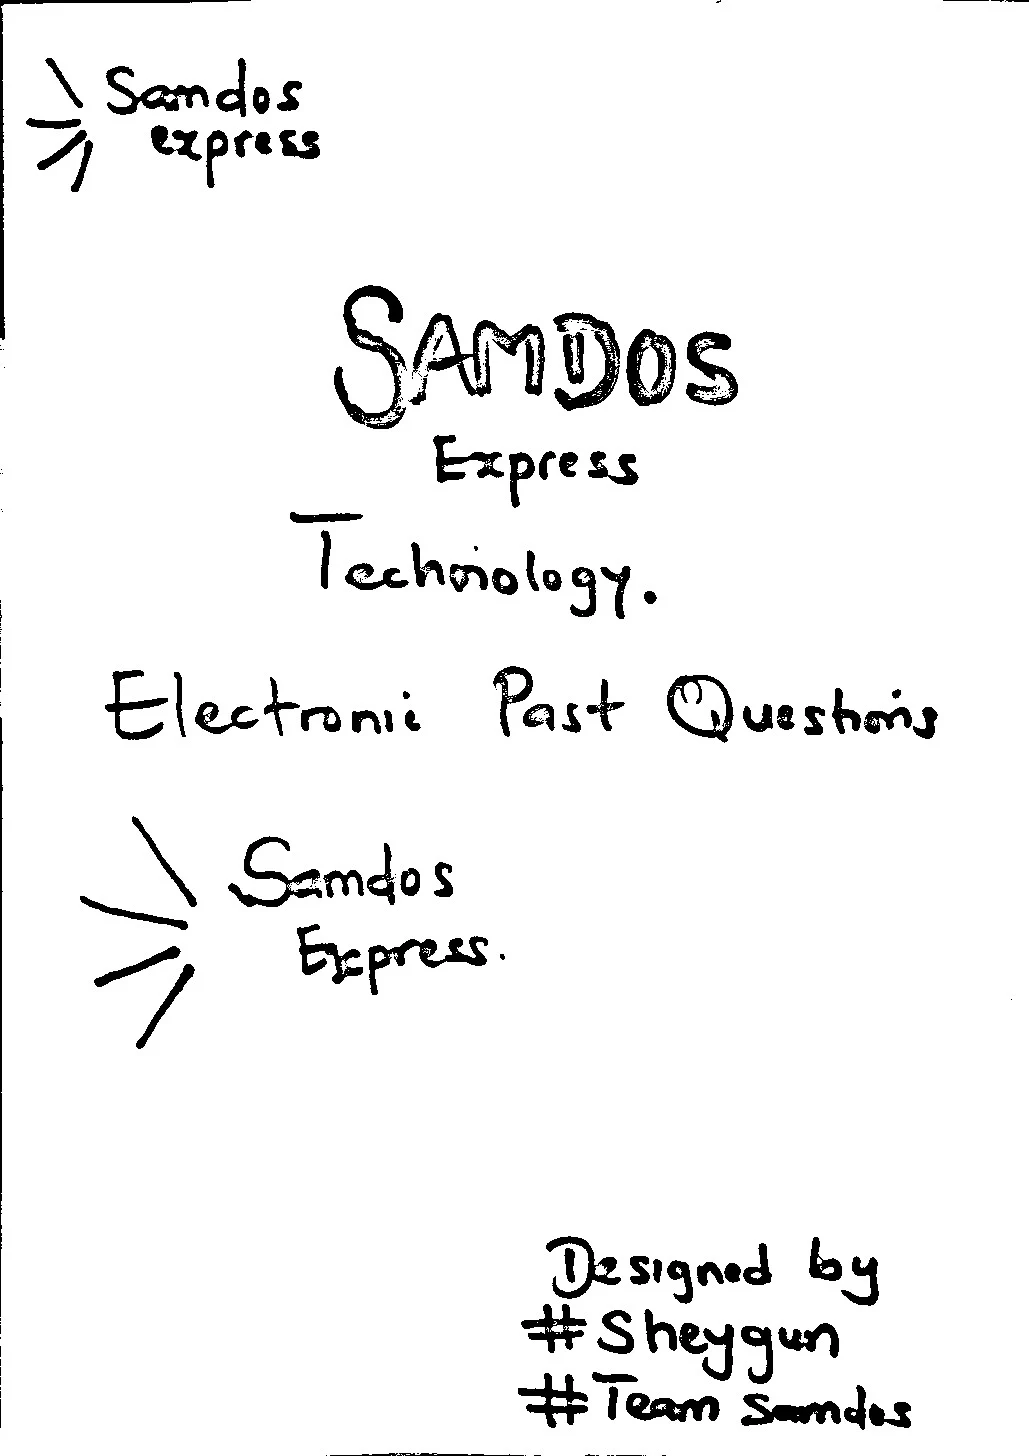 Samdos
express
SAMDOS
Express
Technology.
Electronic Past Questions
Samdos
Express.
Designed by
#Sheygun
#Team Samdos